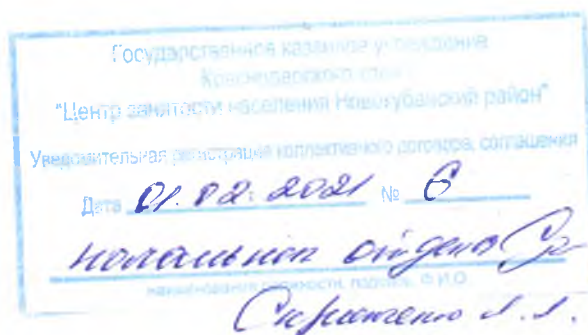 Государственное казенное учреждение
Краснодарского края
"Центр занятости населения Новокубанский район"
Уведомительная регистрация коллективного договора, соглашения
Дата 01.02.2021 № 6
начальник отдела
наименование должности, подпись, Ф.И.О.